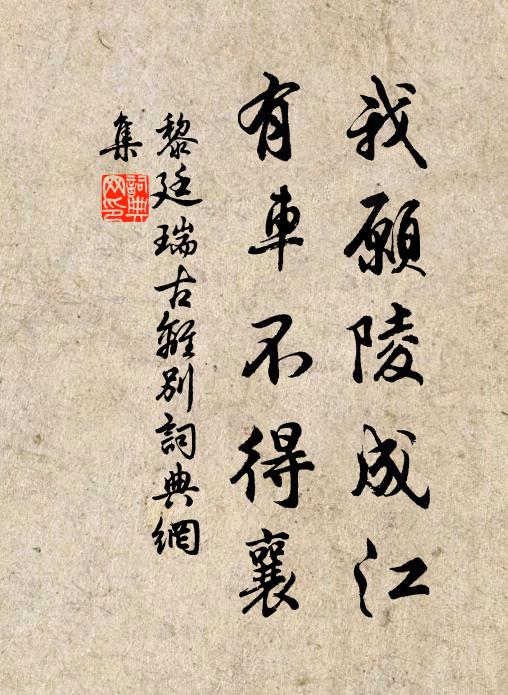 我願陵成江
有車不得襄
黎廷瑞古離別詞典網
集
詞典
网印